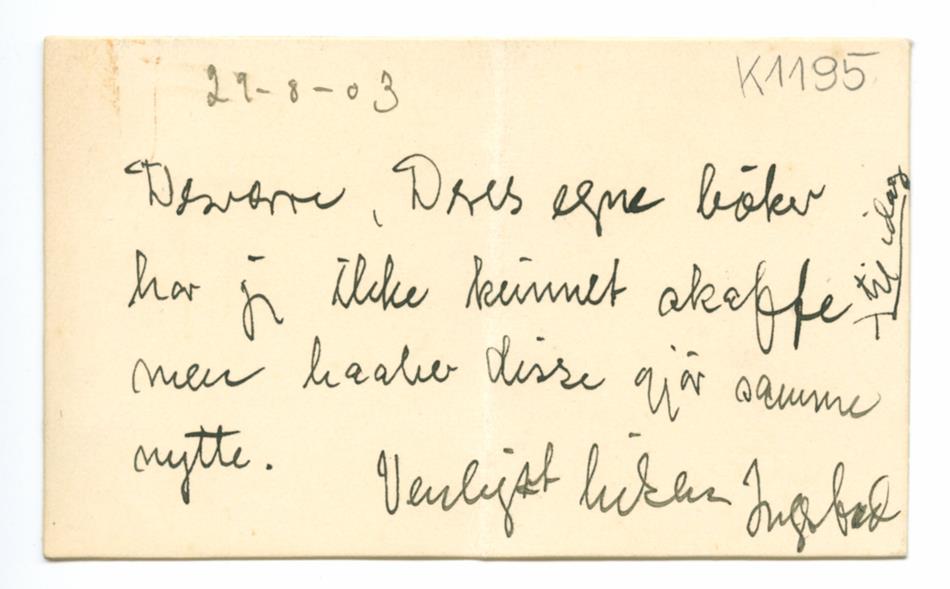 29-8-03
K1195
Desværre, Deres egne böker
har jeg ikke kunnet skaffe
til idag
men haaber disse gjör samme
nytte.
Venligst hilsen Ingebod